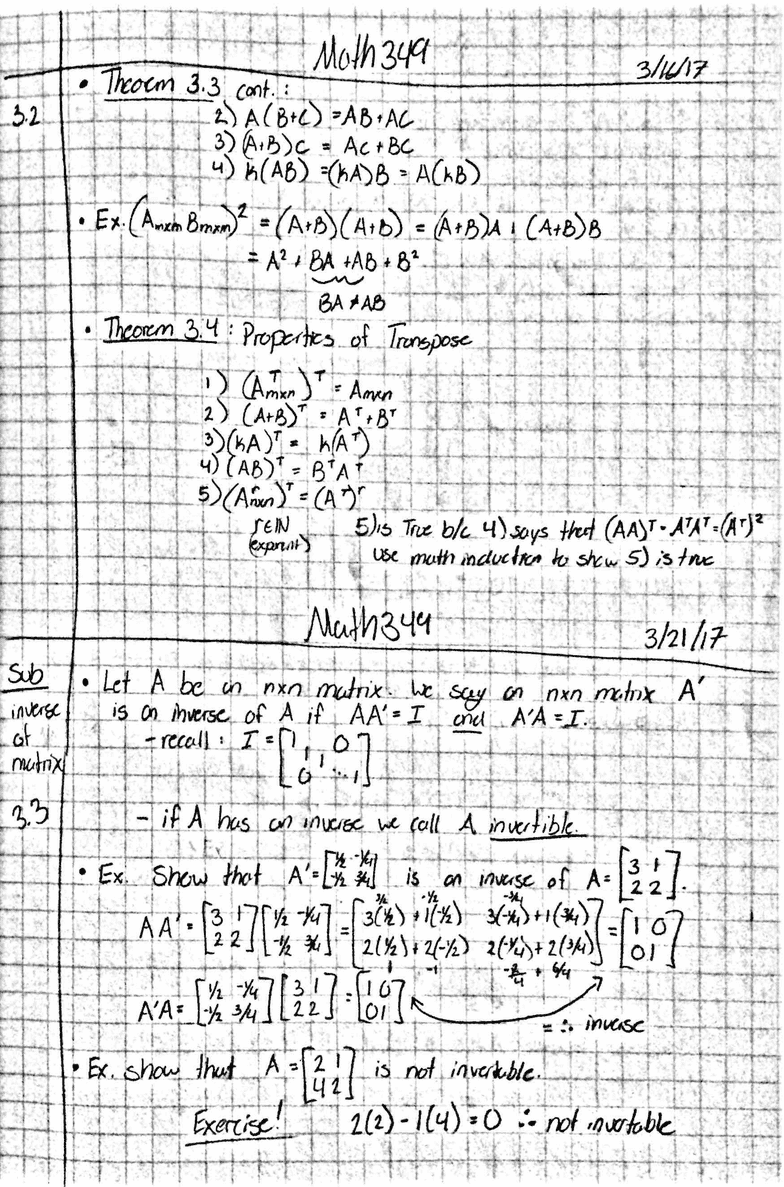 Math 349 3/16/17
3.2
• Theorem 3.3 cont.:
2) A(B+C) = AB+AC
3) (A+B)C = AC + BC
4) k(AB) = (kA)B = A(kB)
• Ex. (Aₘₓₘ Bₘₓₘ)² = (A+B)(A+B) = (A+B)A + (A+B)B
= A² + BA + AB + B²
BA ≠ AB
• Theorem 3.4 : Properties of Transpose
1) (Aᵀₘₓₙ)ᵀ = Aₘₓₙ
2) (A+B)ᵀ = Aᵀ+Bᵀ
3) (kA)ᵀ = k(Aᵀ)
4) (AB)ᵀ = BᵀAᵀ
5) (Aʳₙₓₙ)ᵀ = (Aᵀ)ʳ
r∈ℕ 5) is True b/c 4) says that (AA)ᵀ = AᵀAᵀ = (Aᵀ)²
(exponent) use math induction to show 5) is true
Math 349 3/21/17
Sub
inverse
of
matrix
3.3
• Let A be an nxn matrix. We say an nxn matrix A'
is an inverse of A if AA' = I and A'A = I.
- recall : I = [1 1 0
0 ⋱ 1]
- if A has an inverse we call A invertible.
• Ex. Show that A' = [1/2 -1/4; -1/2 3/4] is an inverse of A = [3 1; 2 2].
3/2 -1/2 -3/4
AA' = [3 1; 2 2] [1/2 -1/4; -1/2 3/4] = [3(1/2)+1(-1/2) 3(-1/4)+1(3/4); 2(1/2)+2(-1/2) 2(-1/4)+2(3/4)] = [1 0; 0 1]
1 -1 -2/4 + 6/4
A'A = [1/2 -1/4; -1/2 3/4] [3 1; 2 2] = [1 0; 0 1]
= ∴ inverse
• Ex. show that A = [2 1; 4 2] is not invertable.
Exercise! 2(2) - 1(4) = 0 ∴ not invertable